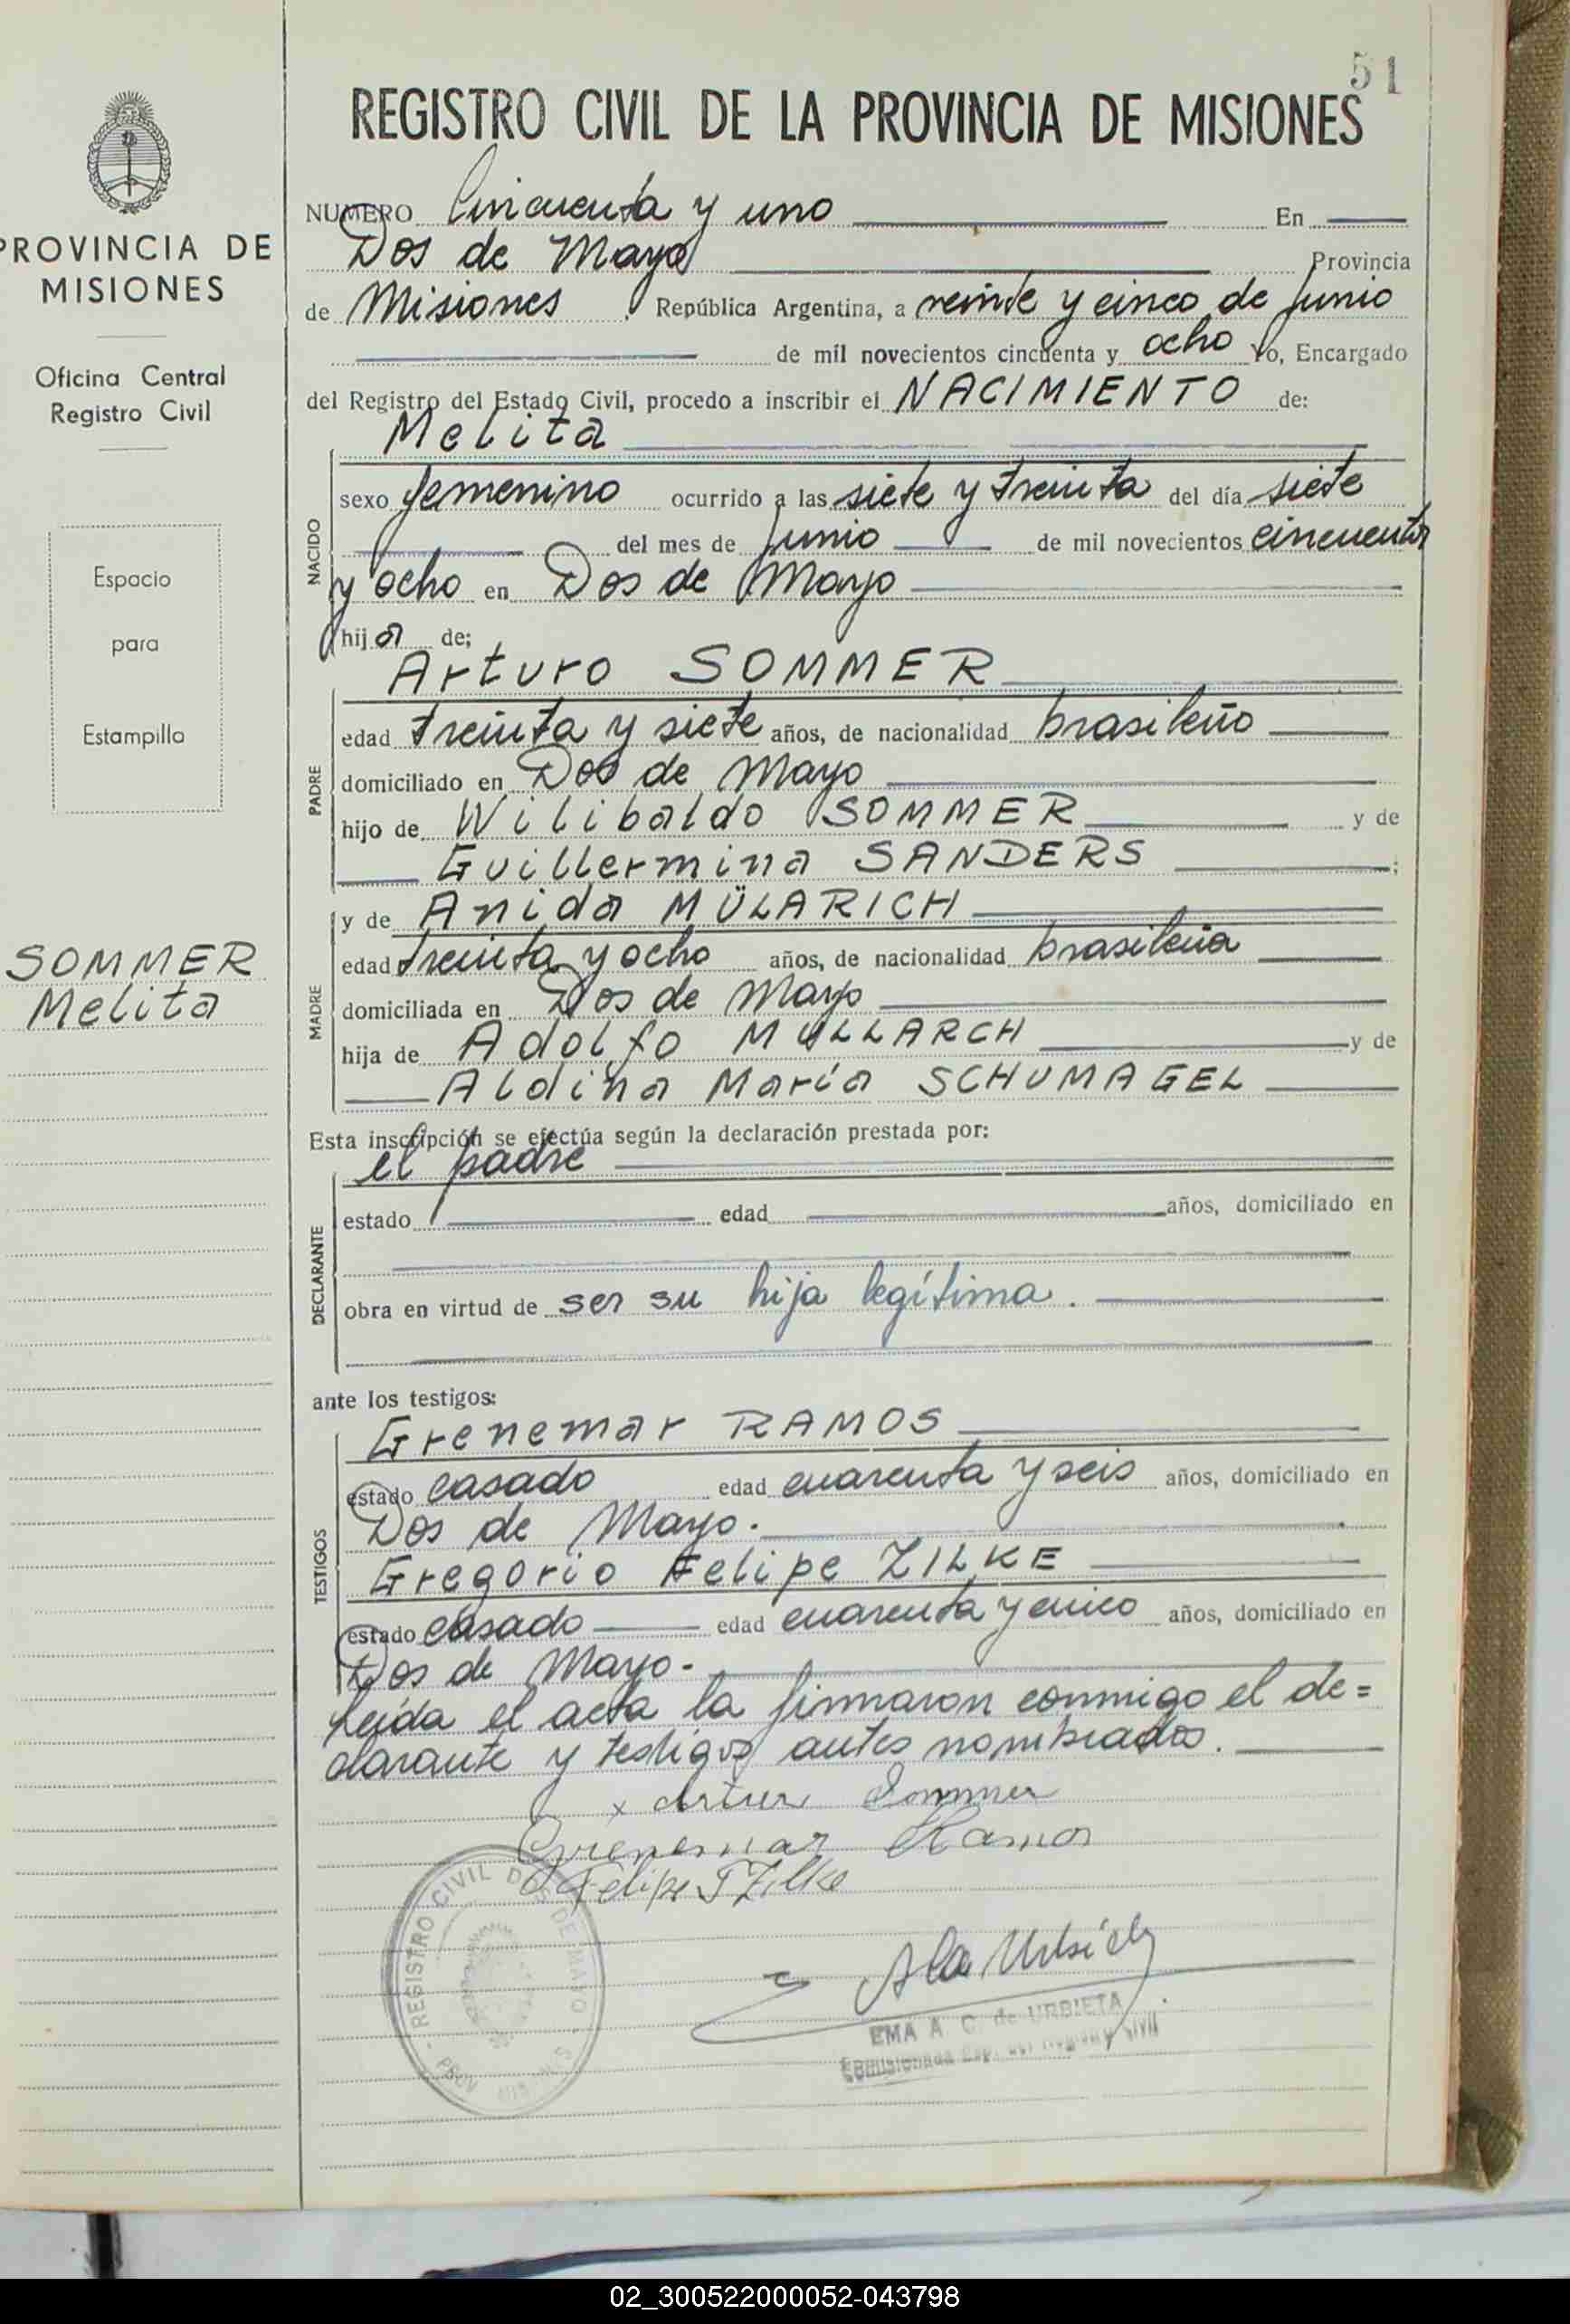 51
REGISTRO CIVIL DE LA PROVINCIA DE MISIONES
PROVINCIA DE
MISIONES
Oficina Central
Registro Civil
Espacio
para
Estampilla
SOMMER
Melita
NUMERO Cincuenta y uno En
Dos de Mayo Provincia
de Misiones, República Argentina, a veinte y cinco de Junio
de mil novecientos cincuenta y ocho Yo, Encargado
del Registro del Estado Civil, procedo a inscribir el NACIMIENTO de:
Melita
NACIDO
sexo femenino ocurrido a las siete y treinta del día siete
del mes de Junio de mil novecientos cincuenta
y ocho en Dos de Mayo
hija de;
Arturo SOMMER
PADRE
edad treinta y siete años, de nacionalidad brasileño
domiciliado en Dos de Mayo
hijo de Wilibaldo SOMMER y de
Guillermina SANDERS;
MADRE
y de Anida MÜLARICH
edad treinta y ocho años, de nacionalidad brasileña
domiciliada en Dos de Mayo
hija de Adolfo MULLARCH y de
Aldina María SCHUMAGEL
Esta inscripción se efectúa según la declaración prestada por:
el padre
DECLARANTE
estado edad años, domiciliado en
obra en virtud de ser su hija legítima.
ante los testigos:
TESTIGOS
Grenemar RAMOS
estado casado edad cuarenta y seis años, domiciliado en
Dos de Mayo.
Gregorio Felipe ZILKE
estado casado edad cuarenta y cinco años, domiciliado en
Dos de Mayo.-
Leída el acta la firmaron conmigo el de=
clarante y testigos antes nombrados.
x Artur Sommer
Grenemar Ramos
Felipe G Zilke
REGISTRO CIVIL DOS DE MAYO
PROV
EMA A. C. de URBIETA
Comisionada Esp. del Registro Civil
02_300522000052-043798